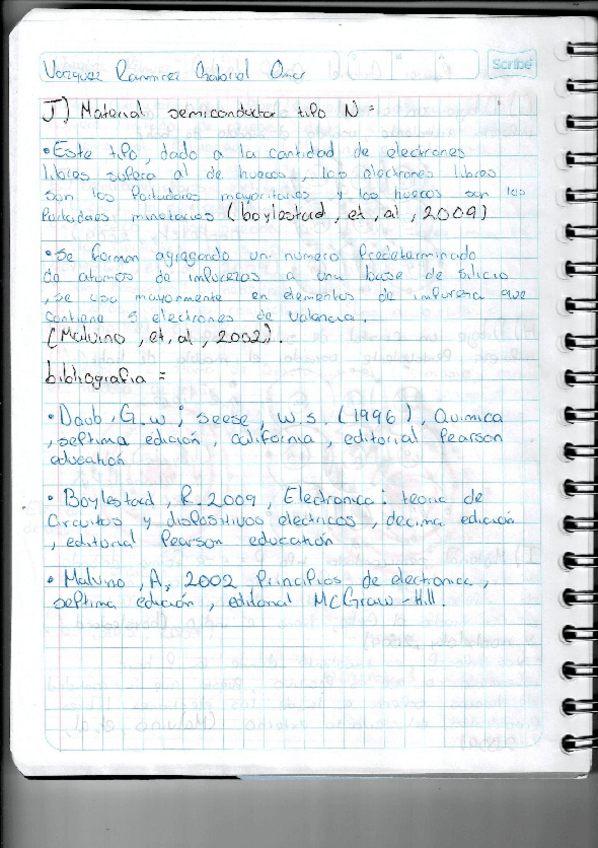 Vazquez Ramirez Gabriel Omar
Scribe
J) Material semiconductor tipo N =
• Este tipo, dado a la cantidad de electrones
libres supera al de huecos, los electrones libres
son los Portadores mayoritarios y los huecos son los
Portadores minoritarios (boylestad, et, al, 2009)
• Se forman agregando un numero Predeterminado
de atomos de impurezas a una base de silicio
, se usa mayormente en elementos de impuresa que
contiene 5 electrones de valencia.
(Malvino, et, al, 2002).
bibliografia =
• Daub, G.w; seese, w.s. (1996), Quimica
, septima edición, california, editorial Pearson
education
• Boylestad, R. 2009, Electronica: teoria de
Circuitos y dispositivos electricos, decima edición
, editorial Pearson education
• Malvino, A, 2002 Principios de electronica,
septima edición, editorial McGraw-Hill.